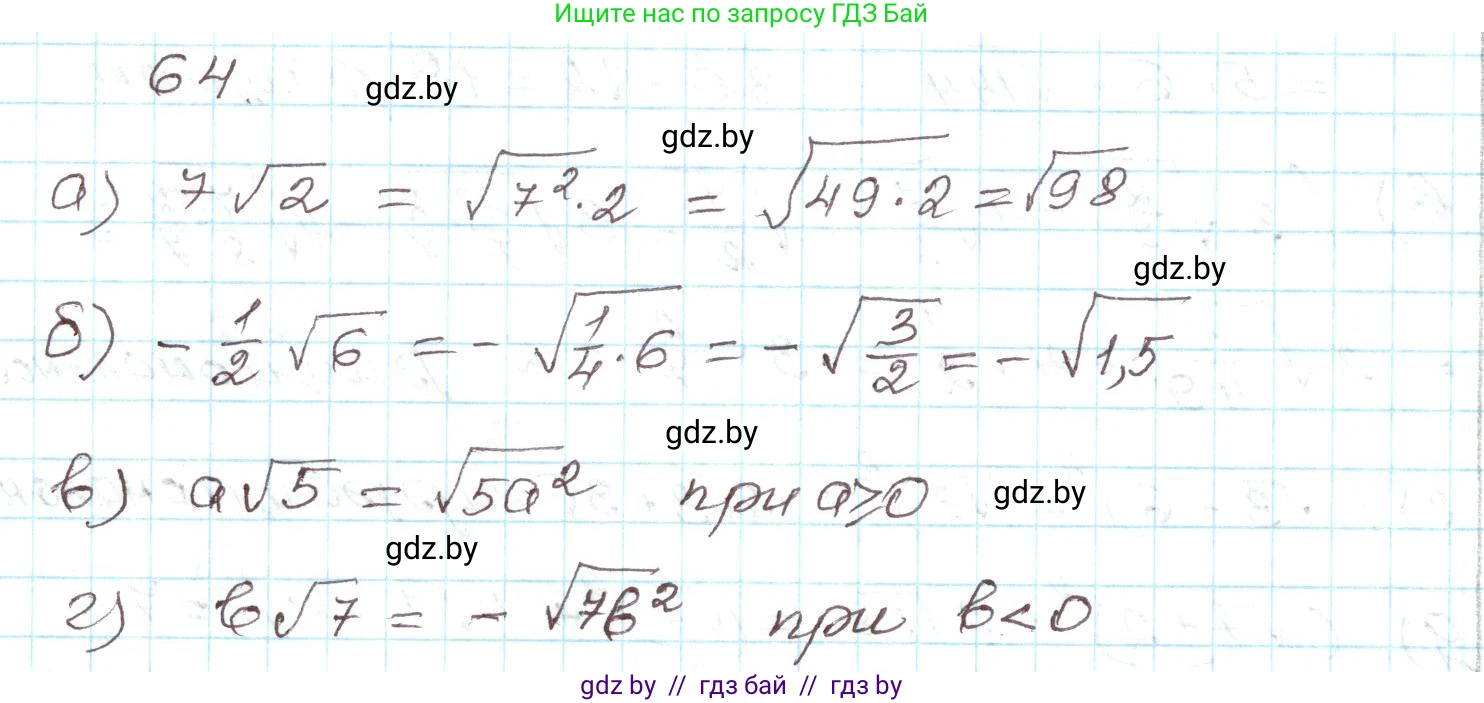 Ищите нас по запросу ГДЗ Бай
64.
gdz.by
gdz.by
а) 7√2 = √7²·2 = √49·2 = √98
gdz.by
б) - 1/2 √6 = - √1/4·6 = - √3/2 = - √1,5
gdz.by
в) a√5 = √5a² при a⩾0 gdz.by
gdz.by
г) в√7 = - √7в² при в<0
gdz.by // гдз бай // гдз by